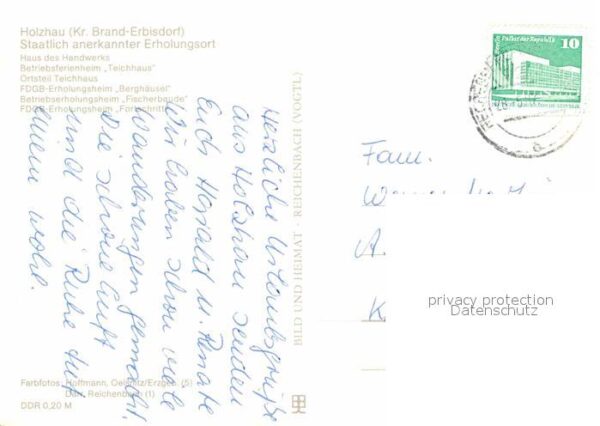 Holzhau (Kr. Brand-Erbisdorf)
Staatlich anerkannter Erholungsort
Haus des Handwerks
Betriebsferienheim „Teichhaus"
Ortsteil Teichhaus
FDGB-Erholungsheim „Berghäusel"
Betriebserholungsheim „Fischerbaude"
FDGB-Erholungsheim „Fortschritt"
Herzliche Urlaubsgrüße
aus Holzhau senden
Euch Harald u. Renate
Wir haben schon viele
Wanderungen gemacht.
Die schöne Luft
und die Ruhe tut
einem wohl.
Farbfotos: Hoffmann, Oelsnitz/Erzgeb. (5)
Darr, Reichenbach (1)
DDR 0,20 M
BILD UND HEIMAT · REICHENBACH (VOGTL)
Palast der Republik
10
Fam.
A.
K
privacy protection
Datenschutz